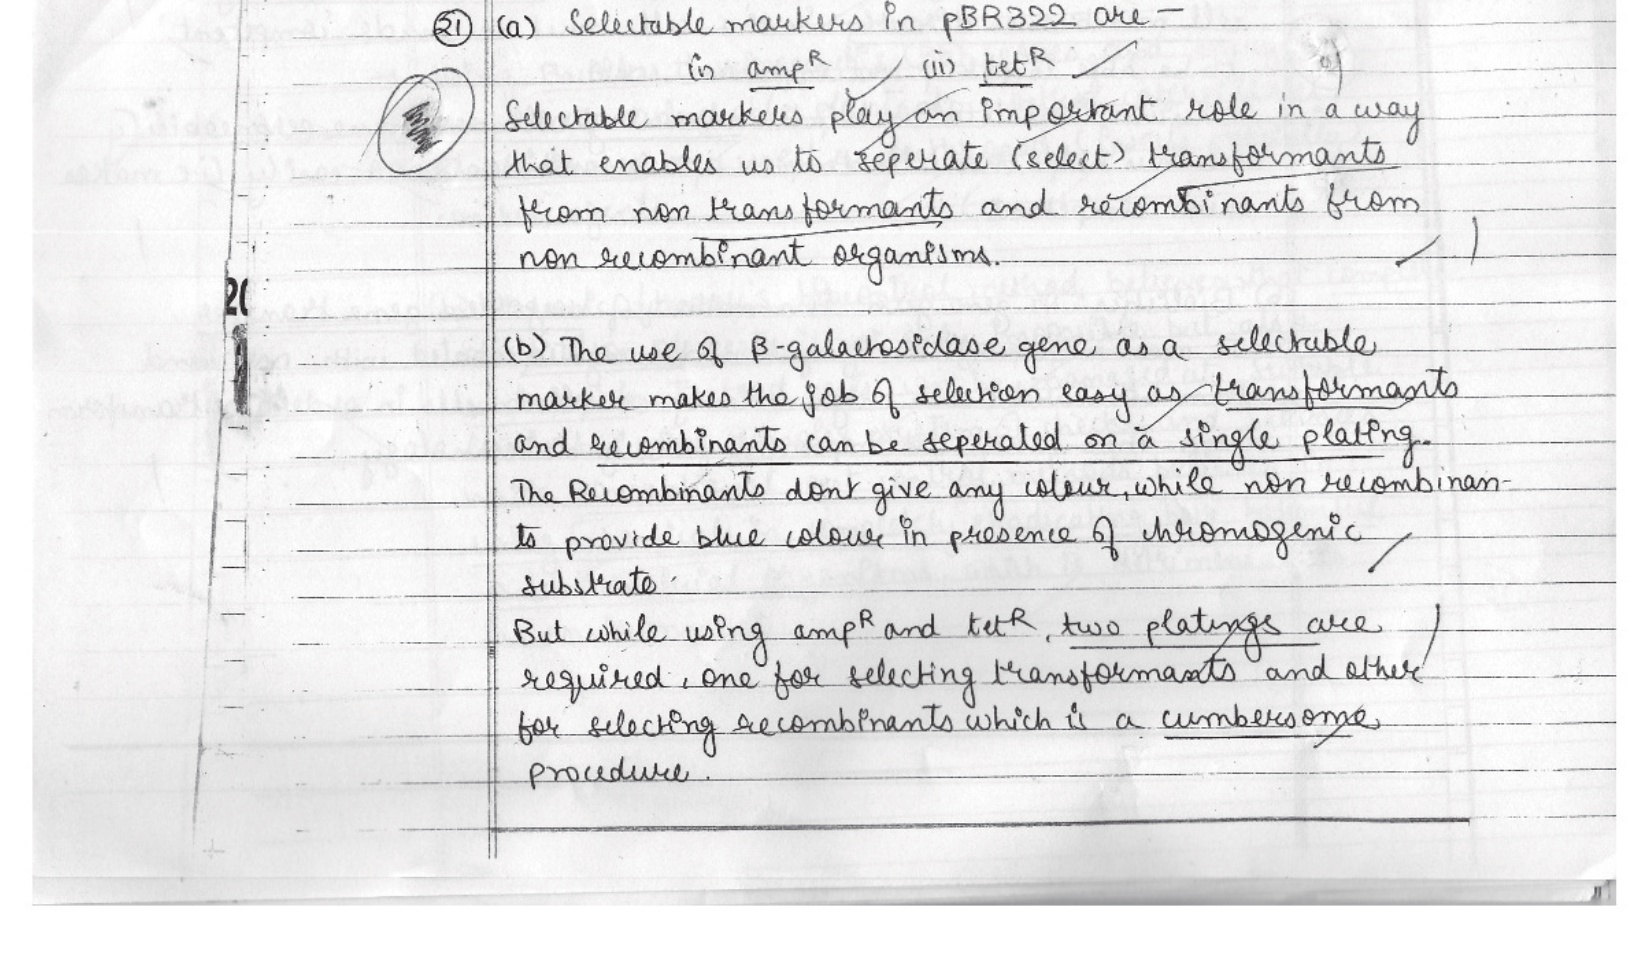 21 (a) Selectable markers in pBR322 are –
(i) ampᴿ (ii) tetᴿ
Selectable markers play an important role in a way
that enables us to seperate (select) transformants
from non transformants and recombinants from
non recombinant organisms.
20
(b) The use of β-galactosidase gene as a selectable
marker makes the job of selection easy as transformants
and recombinants can be seperated on a single plating.
The Recombinants dont give any colour, while non recombinan-
ts provide blue colour in presence of chromogenic
substrate.
But while using ampᴿ and tetᴿ, two platings are
required, one for selecting transformants and other
for selecting recombinants which is a cumbersome
procedure.